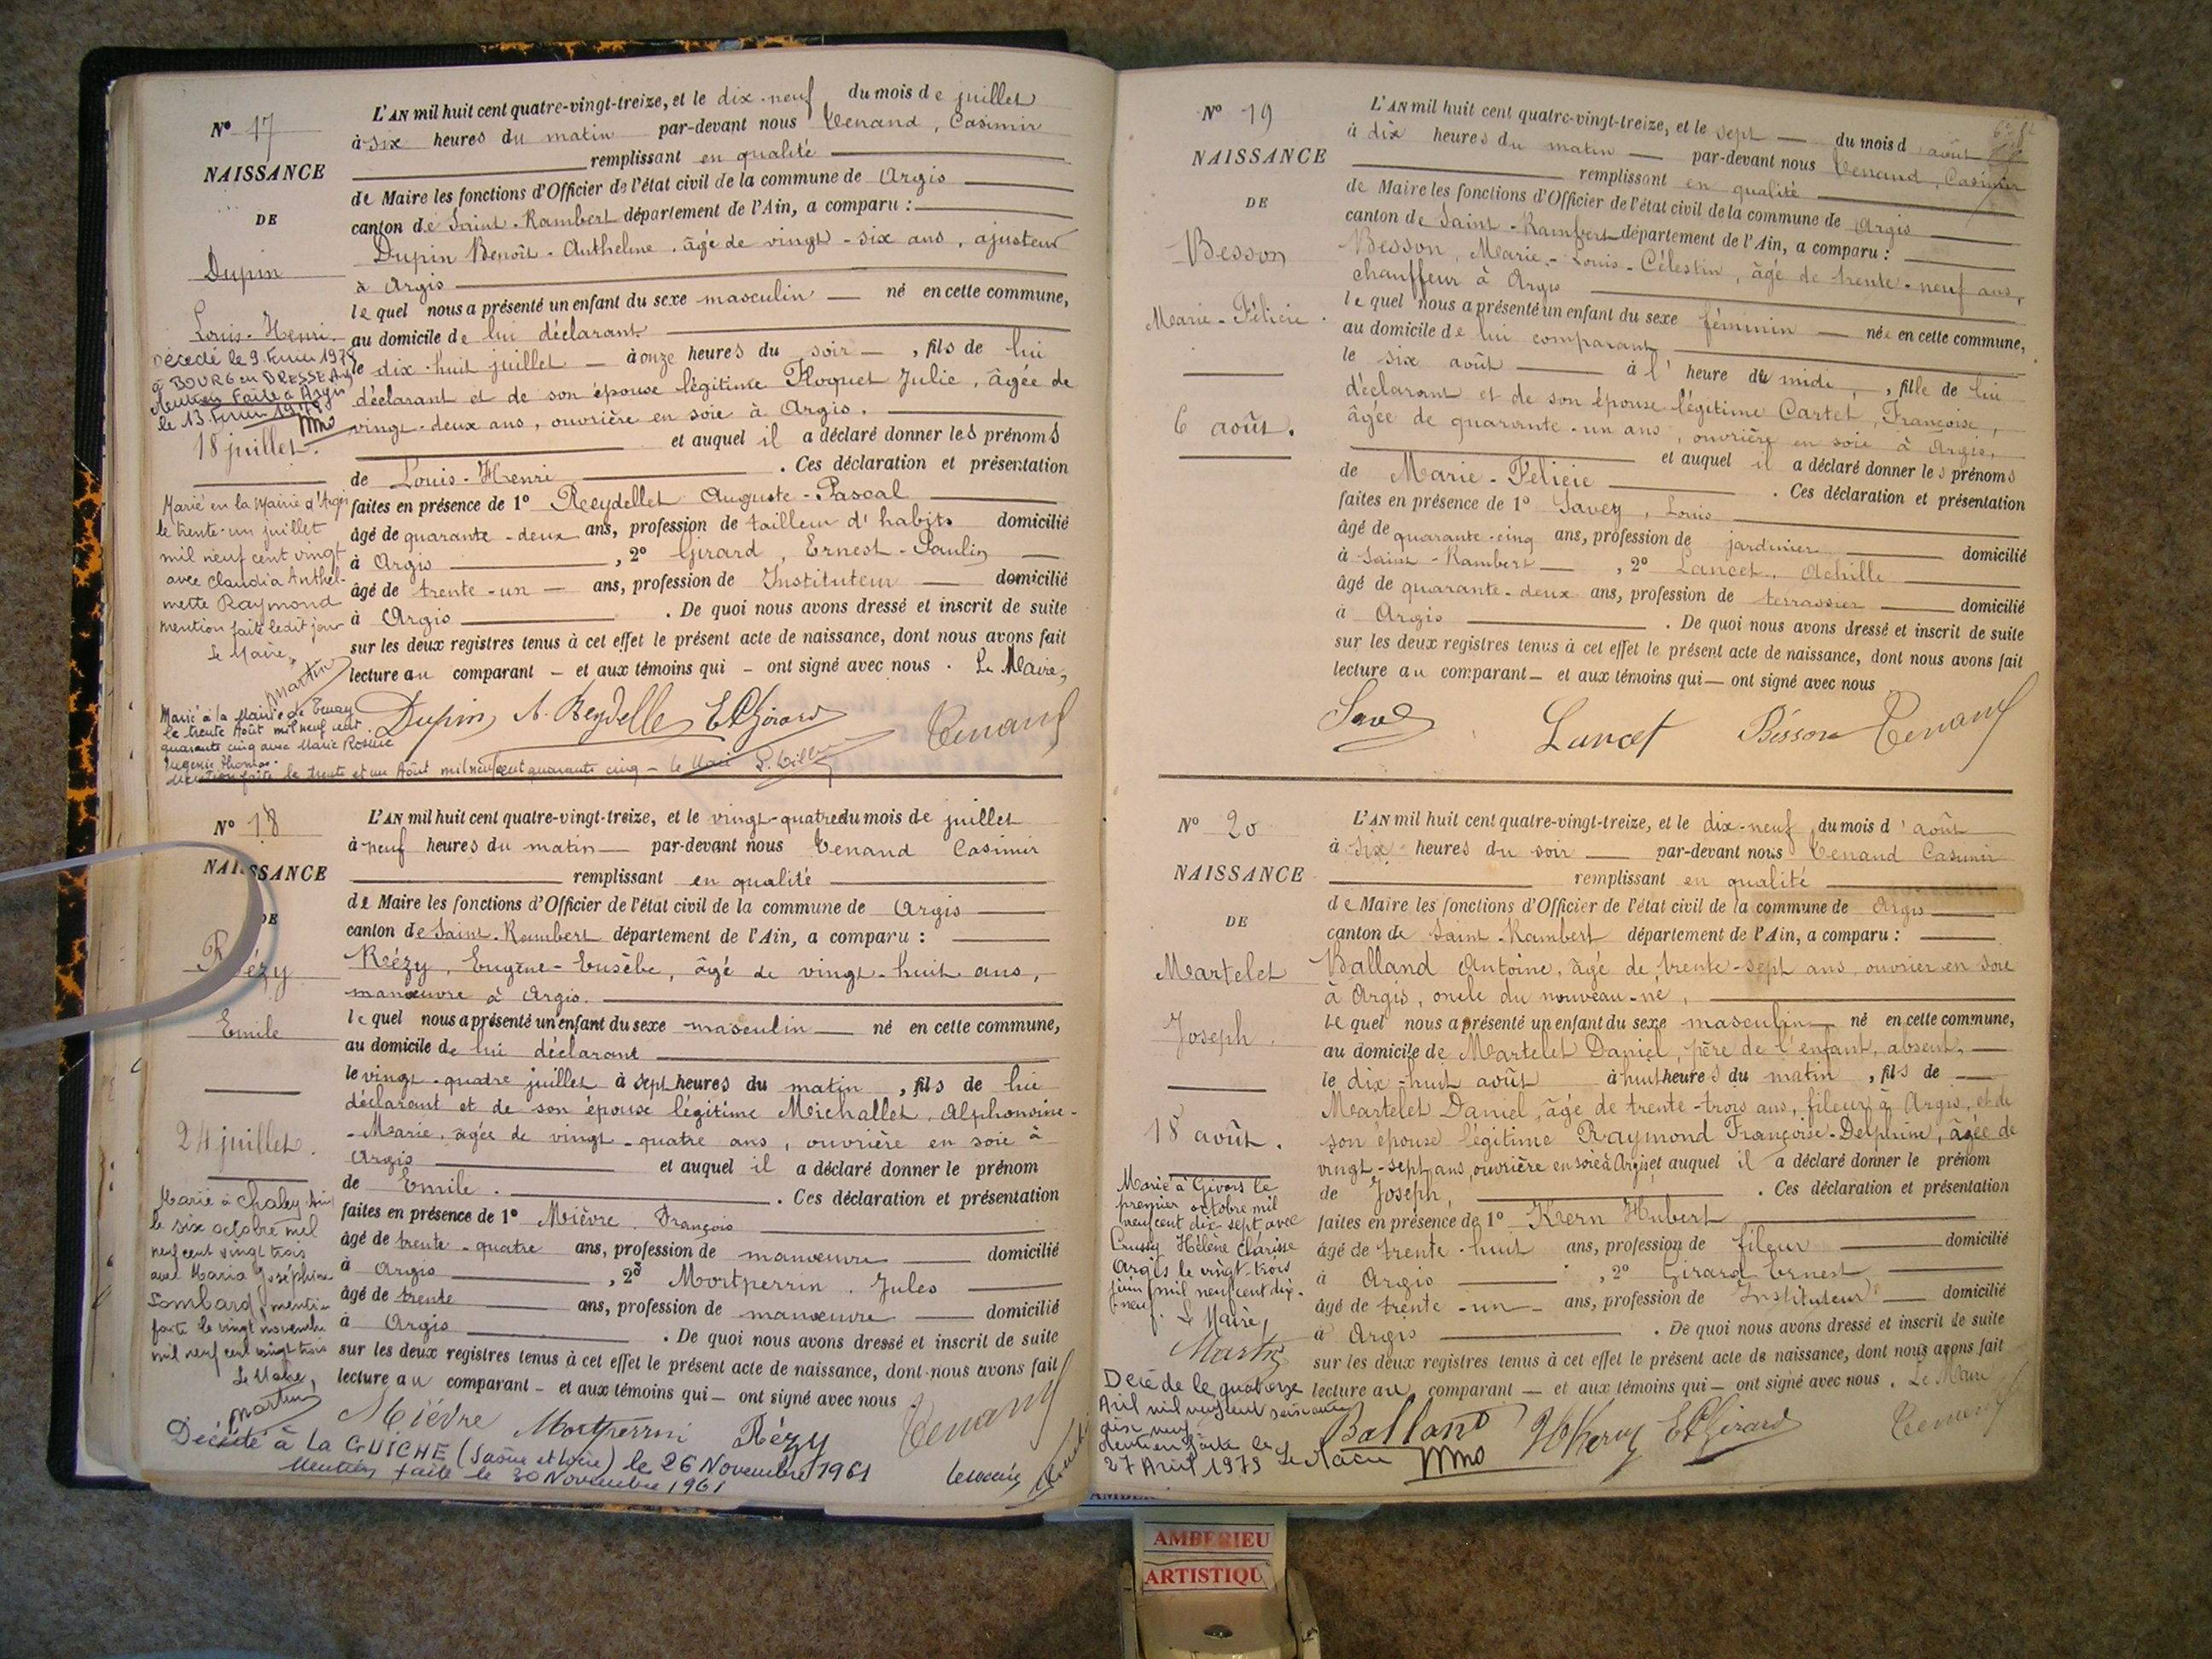 N° 17
NAISSANCE
DE
Dupin
Louis-Henri.
Décédé le 9 Février 1978
à BOURG en BRESSE Ain
Mention faite à Argis
le 13 Février 1978
18 juillet.
Marié en la Mairie d'Argis
le trente-un juillet
mil neuf cent vingt
avec Claudia Anthel-
mette Raymond
mention faite ledit jour
Le Maire,
Martin
Marié à la Mairie de Tenay
le trente Août mil neuf cent
quarante cinq avec Marie Rosine
Eugénie Thomas.
Mention faite le trente et un Août mil neuf cent quarante cinq - le Maire
L'AN mil huit cent quatre-vingt-treize, et le dix-neuf du mois de juillet
à six heures du matin par-devant nous Tenand, Casimir
remplissant en qualité
de Maire les fonctions d'Officier de l'état civil de la commune de Argis
canton de Saint-Rambert département de l'Ain, a comparu :
Dupin Benoît-Anthelme, âgé de vingt-six ans, ajusteur
à Argis
lequel nous a présenté un enfant du sexe masculin né en cette commune,
au domicile de lui déclarant
le dix-huit juillet à onze heures du soir, fils de lui
déclarant et de son épouse légitime Floquet Julie, âgée de
vingt-deux ans, ouvrière en soie à Argis.
et auquel il a déclaré donner les prénoms
de Louis-Henri. Ces déclaration et présentation
faites en présence de 1° Reydellet Auguste-Pascal
âgé de quarante-deux ans, profession de tailleur d'habits domicilié
à Argis, 2° Girard, Ernest-Paulin
âgé de trente-un ans, profession de Instituteur domicilié
à Argis. De quoi nous avons dressé et inscrit de suite
sur les deux registres tenus à cet effet le présent acte de naissance, dont nous avons fait
lecture au comparant - et aux témoins qui - ont signé avec nous. Le Maire,
Dupin A. Reydellet E. Girard Tenand
N° 18
NAISSANCE
DE
Rézy
Emile
24 juillet.
Marié à Chaley Ain
le six octobre mil
neuf cent vingt trois
avec Maria Joséphine
Lombard, mention
faite le vingt novembre
mil neuf cent vingt trois
Le Maire,
Martin
L'AN mil huit cent quatre-vingt-treize, et le vingt-quatre du mois de juillet
à neuf heures du matin par-devant nous Tenand Casimir
remplissant en qualité
de Maire les fonctions d'Officier de l'état civil de la commune de Argis
canton de Saint-Rambert département de l'Ain, a comparu :
Rézy, Eugène-Eusèbe, âgé de vingt-huit ans,
manœuvre à Argis.
lequel nous a présenté un enfant du sexe masculin né en cette commune,
au domicile de lui déclarant
le vingt-quatre juillet à sept heures du matin, fils de lui
déclarant et de son épouse légitime Michallet, Alphonsine-
-Marie, âgée de vingt-quatre ans, ouvrière en soie à
Argis et auquel il a déclaré donner le prénom
de Emile. Ces déclaration et présentation
faites en présence de 1° Mièvre François
âgé de trente-quatre ans, profession de manœuvre domicilié
à Argis, 2° Mortperrin. Jules
âgé de trente ans, profession de manœuvre domicilié
à Argis. De quoi nous avons dressé et inscrit de suite
sur les deux registres tenus à cet effet le présent acte de naissance, dont nous avons fait
lecture au comparant - et aux témoins qui - ont signé avec nous
Mièvre Mortperrin Rézy Tenand
Décédé à LA GUICHE (Saône et Loire) le 26 Novembre 1961
Mention faite le 30 Novembre 1961
N° 19
NAISSANCE
DE
Besson
Marie-Félicie.
6 août.
L'AN mil huit cent quatre-vingt-treize, et le sept du mois d'août
à dix heures du matin par-devant nous Tenand, Casimir
remplissant en qualité
de Maire les fonctions d'Officier de l'état civil de la commune de Argis
canton de Saint-Rambert département de l'Ain, a comparu :
Besson, Marie-Louis-Célestin, âgé de trente-neuf ans,
chauffeur à Argis
lequel nous a présenté un enfant du sexe féminin née en cette commune,
au domicile de lui comparant
le six août à l'heure du midi, fille de lui
déclarant et de son épouse légitime Cartet, Françoise,
âgée de quarante-un ans, ouvrière en soie à Argis,
et auquel il a déclaré donner les prénoms
de Marie-Félicie. Ces déclaration et présentation
faites en présence de 1° Savey, Louis
âgé de quarante-cinq ans, profession de jardinier domicilié
à Saint-Rambert, 2° Lancet, Achille
âgé de quarante-deux ans, profession de terrassier domicilié
à Argis. De quoi nous avons dressé et inscrit de suite
sur les deux registres tenus à cet effet le présent acte de naissance, dont nous avons fait
lecture au comparant - et aux témoins qui - ont signé avec nous
Lancet Besson Tenand
N° 20
NAISSANCE
DE
Martelet
Joseph.
18 août.
Marié à Givors le
premier octobre mil
neuf cent dix sept avec
Crussy Hélène Clarisse
Argis le vingt-trois
juin mil neuf cent dix-
neuf. Le Maire,
Martin
Décédé le quatorze
Avril mil neuf cent soixante
dix neuf
Mention faite le
27 Avril 1979 Le Maire
L'AN mil huit cent quatre-vingt-treize, et le dix-neuf du mois d'août
à six heures du soir par-devant nous Tenand Casimir
remplissant en qualité
de Maire les fonctions d'Officier de l'état civil de la commune de Argis
canton de Saint-Rambert département de l'Ain, a comparu :
Balland Antoine, âgé de trente-sept ans, ouvrier en soie
à Argis, oncle du nouveau-né,
lequel nous a présenté un enfant du sexe masculin né en cette commune,
au domicile de Martelet Daniel, père de l'enfant, absent,
le dix-huit août à huit heures du matin, fils de
Martelet Daniel, âgé de trente-trois ans, fileur à Argis, et de
son épouse légitime Raymond Françoise-Delphine, âgée de
vingt-sept ans, ouvrière en soie à Argis et auquel il a déclaré donner le prénom
de Joseph. Ces déclaration et présentation
faites en présence de 1° Kern Hubert
âgé de trente-huit ans, profession de fileur domicilié
à Argis, 2° Girard Ernest
âgé de trente-un ans, profession de Instituteur domicilié
à Argis. De quoi nous avons dressé et inscrit de suite
sur les deux registres tenus à cet effet le présent acte de naissance, dont nous avons fait
lecture au comparant - et aux témoins qui - ont signé avec nous. Le Maire
Balland H Kern E. Girard Tenand
AMBERIEU
ARTISTIQU